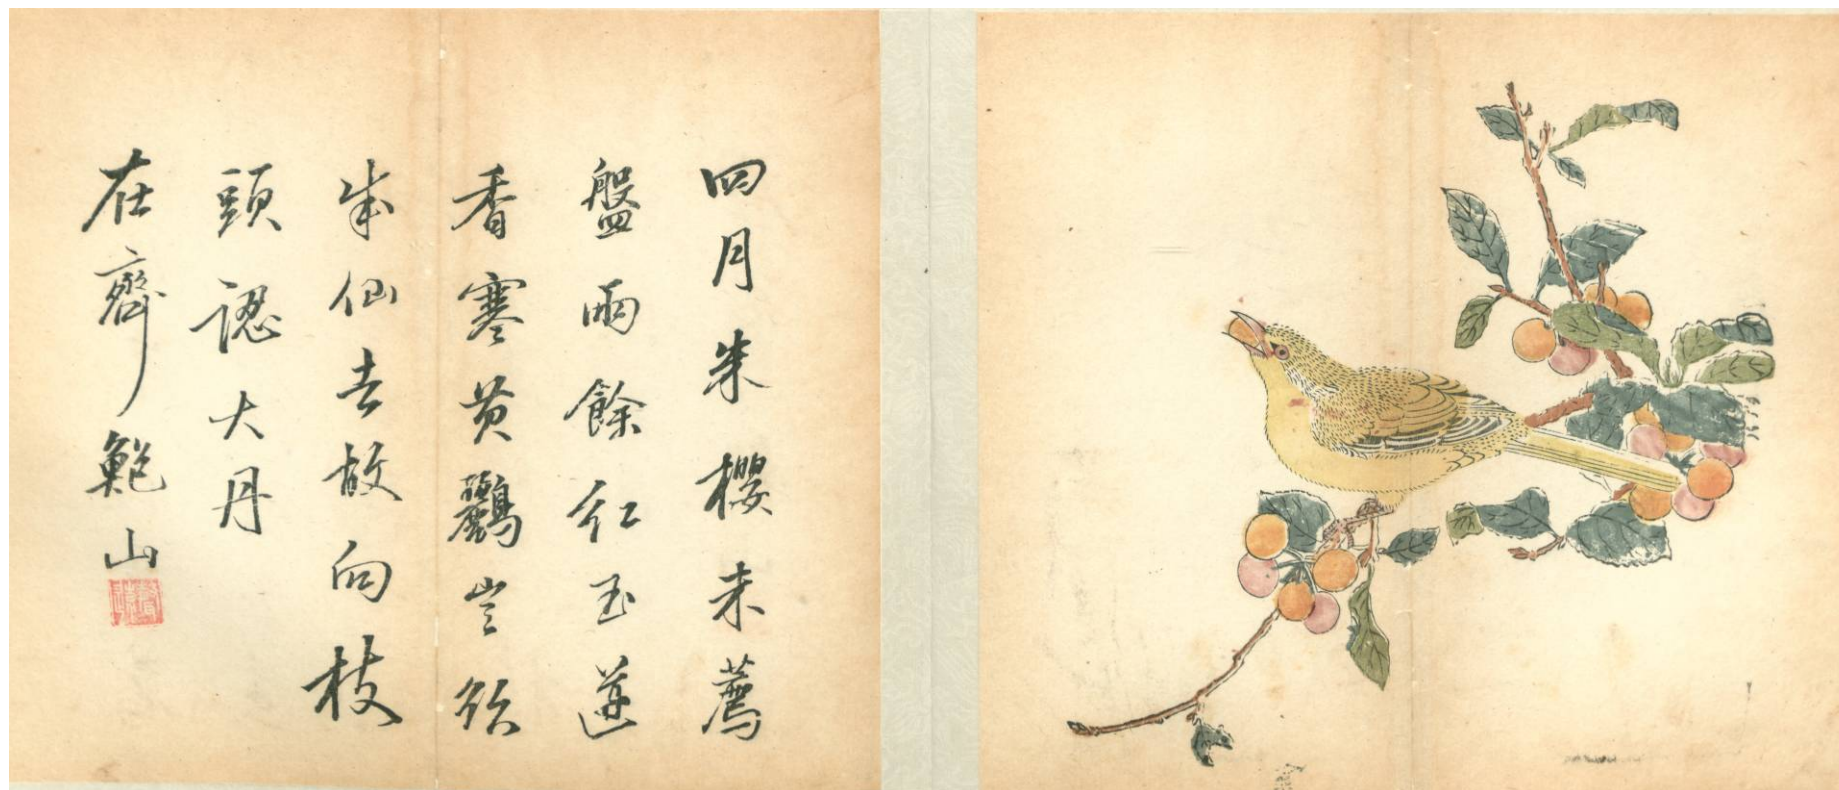 四月朱櫻未薦
盤雨餘紅玉逆
香寒黃鸝豈欲
成仙去故向枝
頭認大丹
在齊鮑山